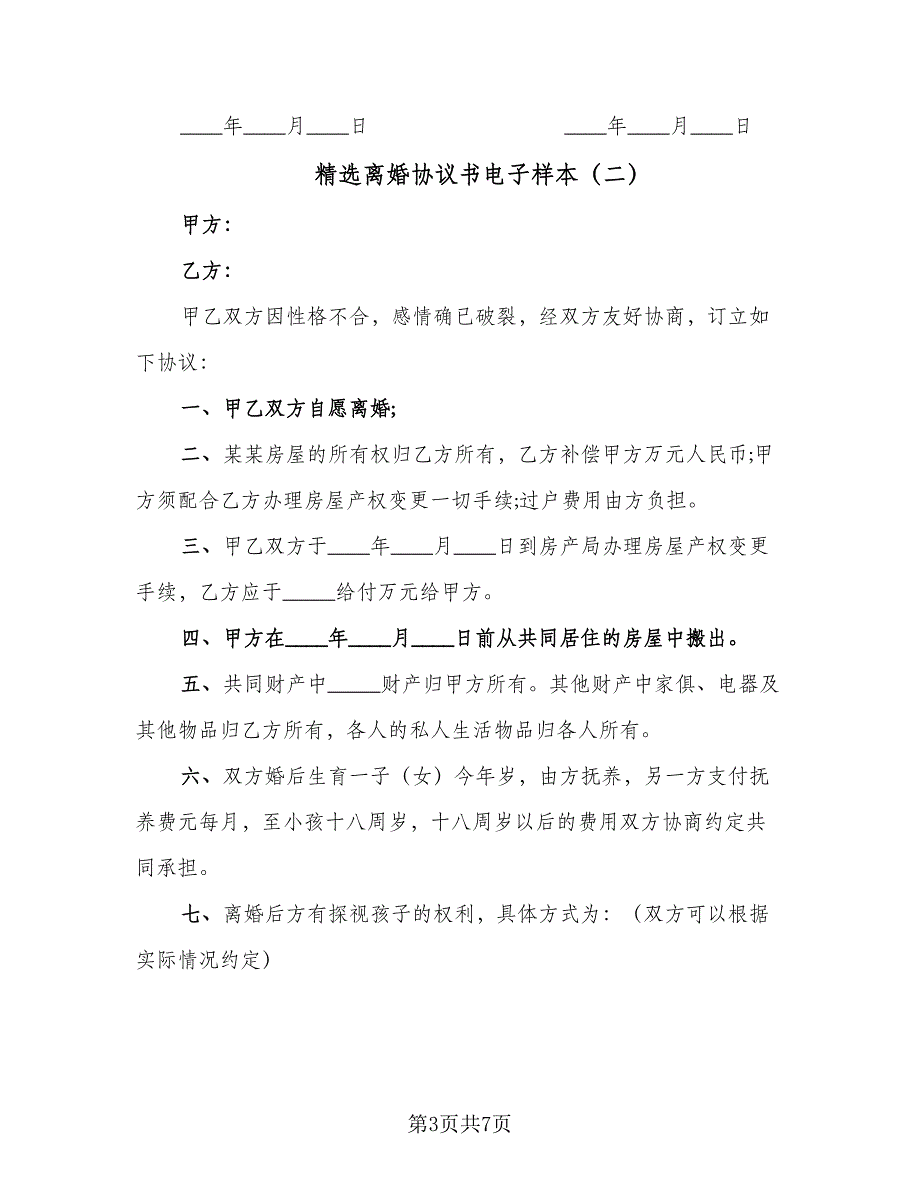 ____年____月____日 ____年____月____日
精选离婚协议书电子样本（二）
甲方：
乙方：
甲乙双方因性格不合，感情确已破裂，经双方友好协商，订立如
下协议：
一、甲乙双方自愿离婚;
二、某某房屋的所有权归乙方所有，乙方补偿甲方万元人民币;甲
方须配合乙方办理房屋产权变更一切手续;过户费用由方负担。
三、甲乙双方于____年____月____日到房产局办理房屋产权变更
手续，乙方应于_____给付万元给甲方。
四、甲方在____年____月____日前从共同居住的房屋中搬出。
五、共同财产中_____财产归甲方所有。其他财产中家俱、电器及
其他物品归乙方所有，各人的私人生活物品归各人所有。
六、双方婚后生育一子（女）今年岁，由方抚养，另一方支付抚
养费元每月，至小孩十八周岁，十八周岁以后的费用双方协商约定共
同承担。
七、离婚后方有探视孩子的权利，具体方式为：（双方可以根据
实际情况约定）
第3页共7页